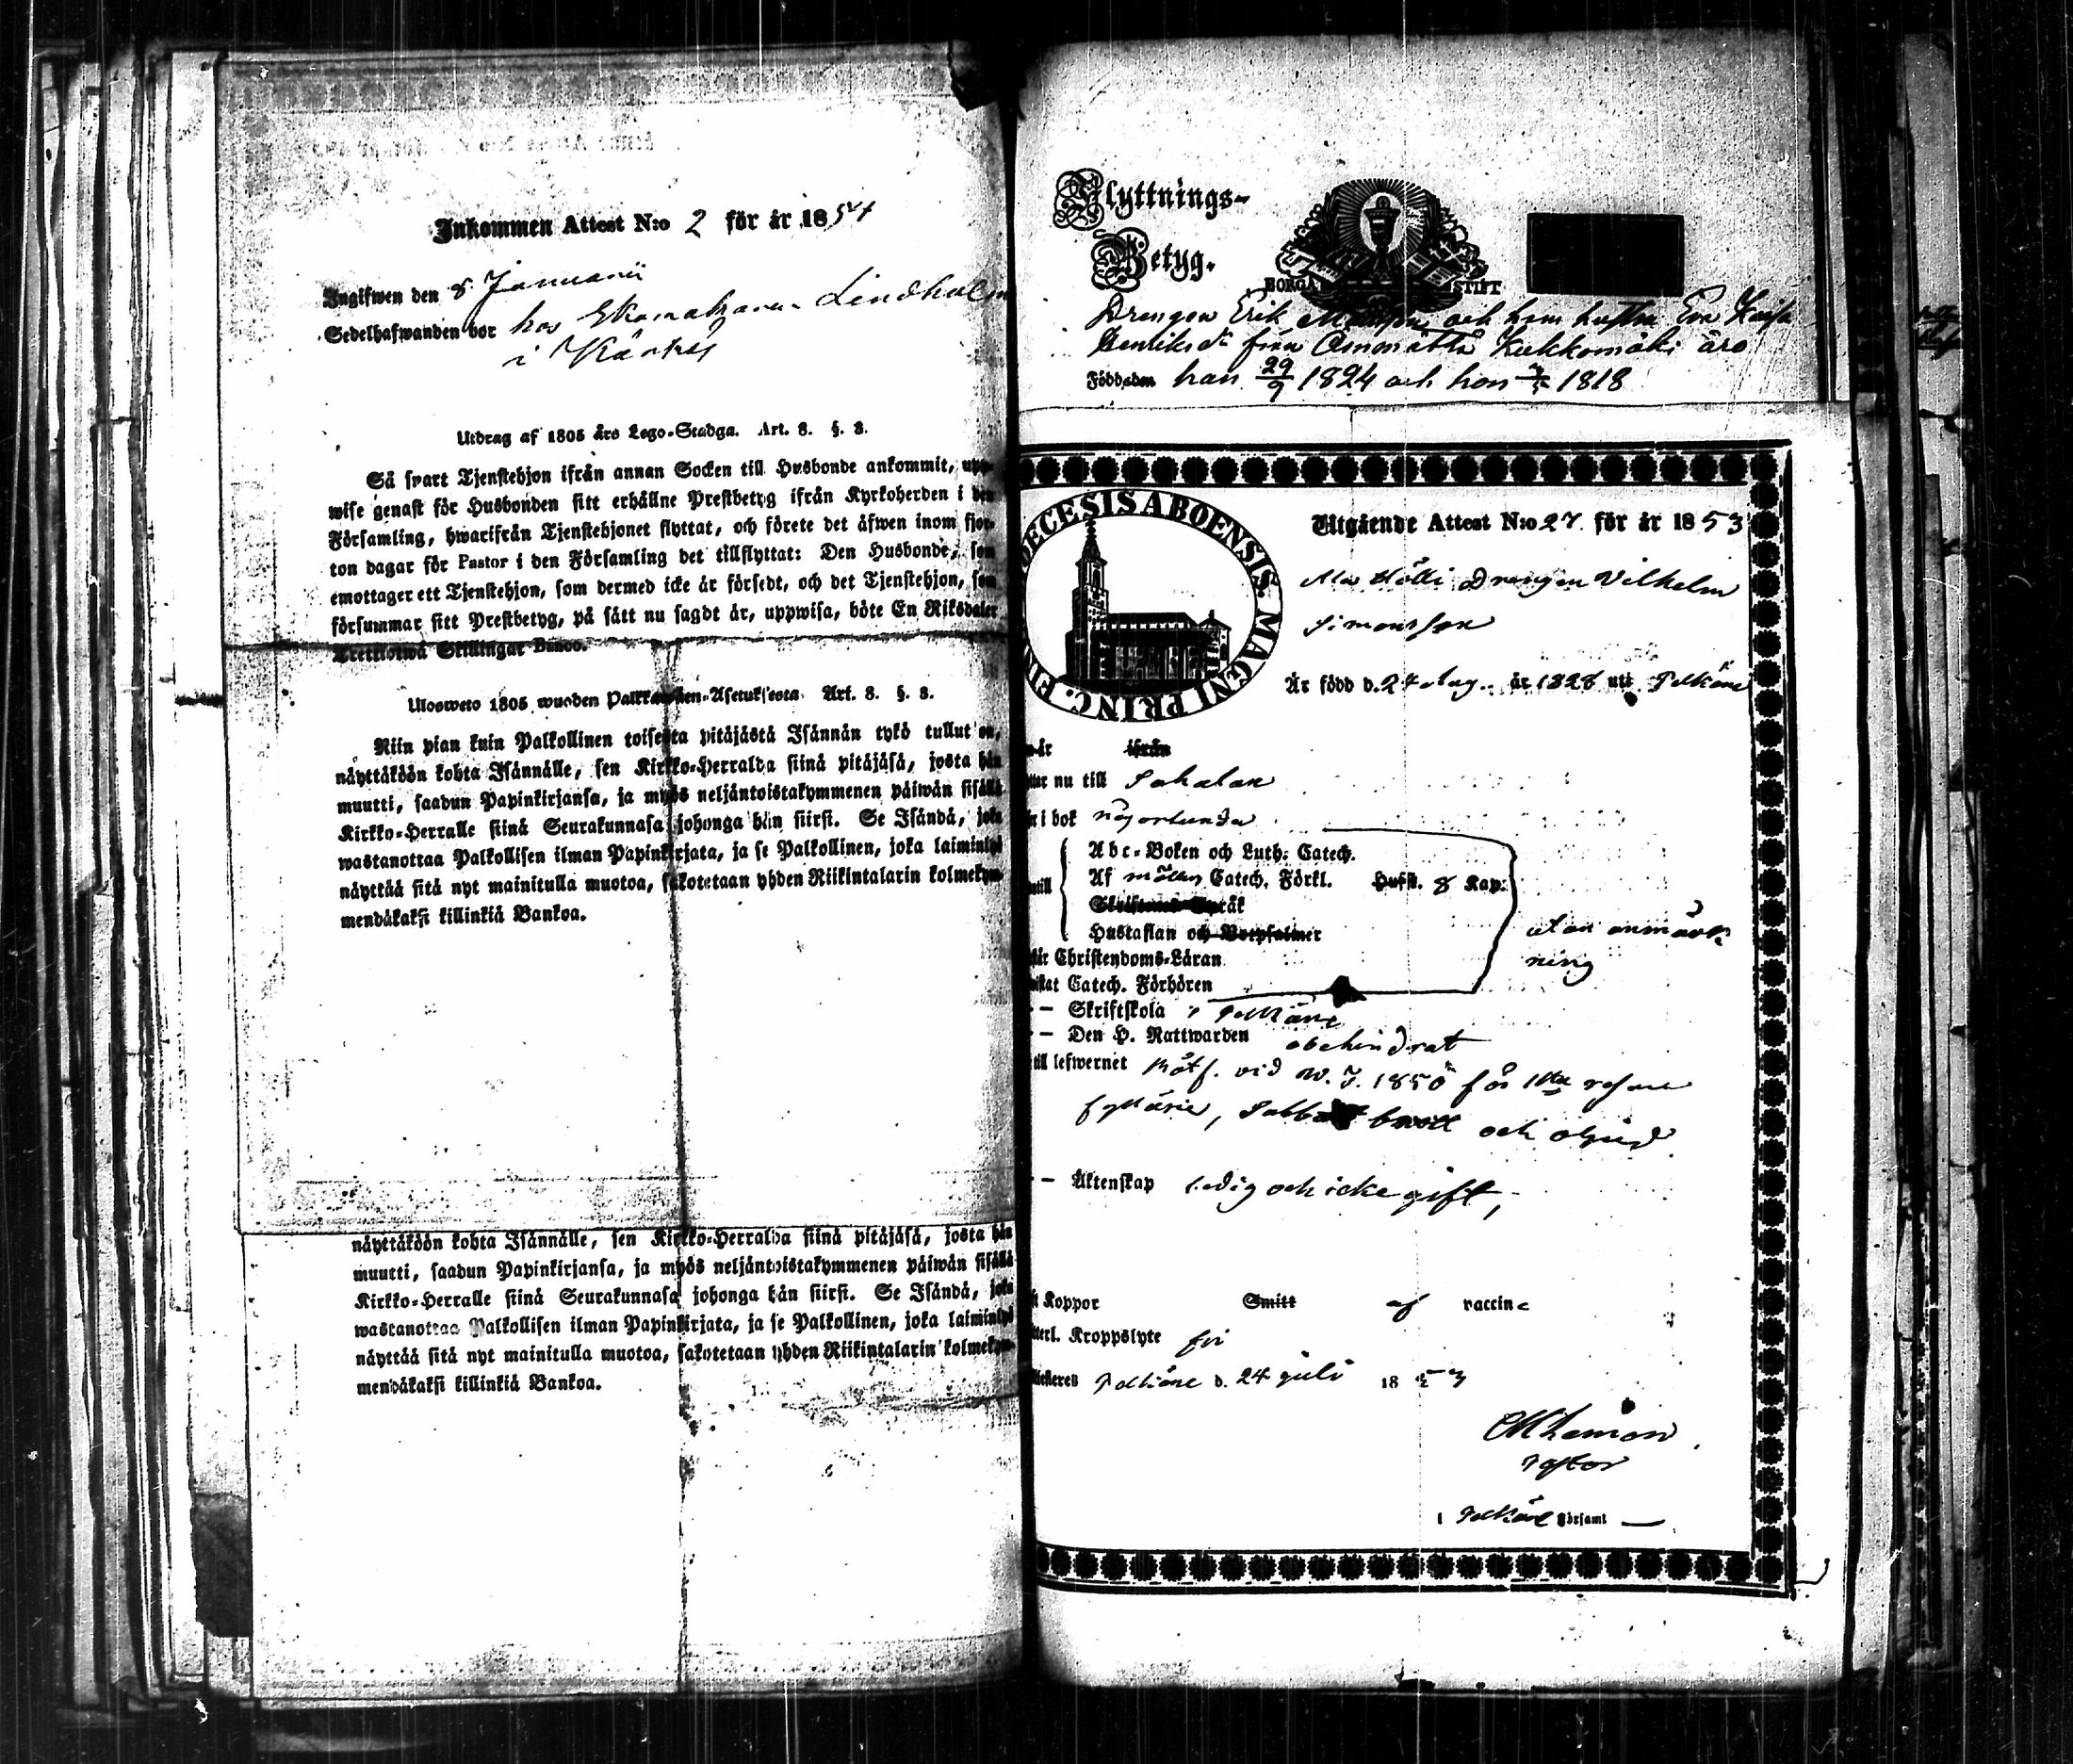 Inkommen Attest N:o 2 för år 1854
Ingifwen den 8 Januarii
Sedelhafwanden bor hos Lindholm
i
Utdrag af 1805 års Lego-Stadga. Art. 8. §. 8.
Så snart Tjenstehjon ifrån annan Socken till Husbonde ankommit, upp-
wise genast för Husbonden sitt erhållne Prestbetyg ifrån Kyrkoherden i den
Församling, hwarifrån Tjenstehjonet flyttat, och förete det äfwen inom fjor-
ton dagar för Pastor i den Församling det tillflyttat: Den Husbonde, som
emottager ett Tjenstehjon, som dermed icke är försedt, och det Tjenstehjon, som
försummar sitt Prestbetyg, på sätt nu sagdt är, uppwisa, böte En Riksdaler
Trettiotwå Skillingar Banco.
Ulosweto 1805 wuoden Palkkawäen-Asetuksesta Art. 8. §. 8.
Niin pian kuin Palkollinen toisesta pitäjästä Isännän tykö tullut on,
näyttäköön kohta Isännälle, sen Kirkko-Herralda siinä pitäjäsä, josta hän
muutti, saadun Papinkirjansa, ja myös neljäntoistakymmenen päiwän sisällä
Kirkko-Herralle siinä Seurakunnasa johonga hän siirsi. Se Isändä, joka
wastanottaa Palkollisen ilman Papinkirjata, ja se Palkollinen, joka laiminlyö
näyttää sitä nyt mainitulla muotoa, sakotetaan yhden Riikintalarin kolmekym-
mendäkaksi killinkiä Bankoa.
näyttäköön kohta Isännälle, sen Kirkko-Herralda siinä pitäjäsä, josta hän
muutti, saadun Papinkirjansa, ja myös neljäntoistakymmenen päiwän sisällä
Kirkko-Herralle siinä Seurakunnasa johonga hän siirsi. Se Isändä, joka
wastanottaa Palkollisen ilman Papinkirjata, ja se Palkollinen, joka laiminlyö
näyttää sitä nyt mainitulla muotoa, sakotetaan yhden Riikintalarin kolmekym-
mendäkaksi killinkiä Bankoa.
Flyttnings-
Betyg.
BORGÅ STIFT
Drengen Erik och hans hustru Eva Kaisa
Henriksdr från Kukkomäki äro
Född den han 29/9 1824 och hon 1818
DIOECESIS ABOENSIS. MAGNI PRINC. FIN
Utgående Attest N:o 27. för år 1853
Drengen Vilhelm
Simonsson
Är född d. 24 Aug. år 1828 uti Pelkäne
är ifrån
nu till Sahalax
i bok någorlunda
Abc-Boken och Luth. Catech.
Af Catech. Förkl. Husst. 8 Kap.
Språk
Hustaflan och Botpsalmer
Christendoms-Läran
utan anmärk
ning
Catech. Förhören
– Skriftskola i Pelkäne
– Den H. Nattwarden obehindrat
till lefwernet vid W. T. 1850 för 1sta resan
fylleri, Sabbatsbrott och oljud
– Äktenskap ledig och icke gift,
Koppor Smitt af vaccine
Kroppslyte fri
Pelkäne d. 24 juli 1853
i Pelkäne Församl